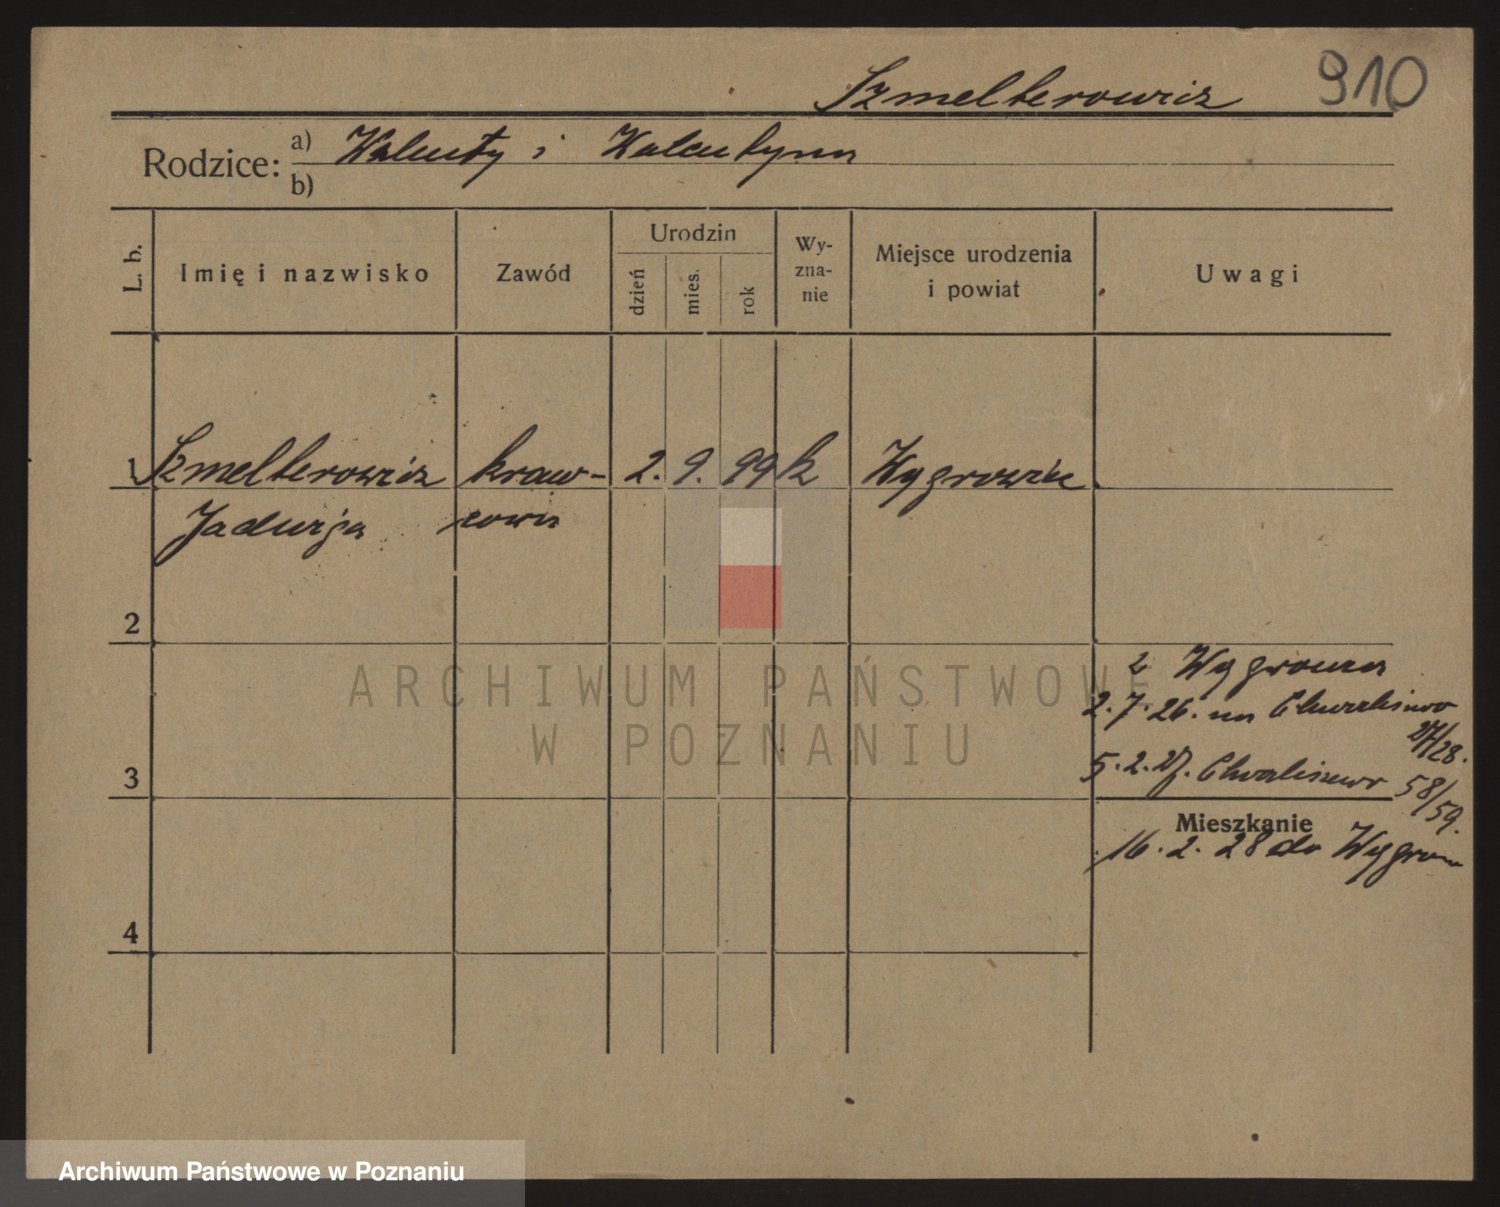 Szmelterowicz 910
Rodzice: a) Walenty i Walentyna
b)
L. b.
Imię i nazwisko
Zawód
Urodzin
dzień
mies.
rok
Wy-
zna-
nie
Miejsce urodzenia
i powiat
Uwagi
1 Szmelterowicz kraw- 2. 9. 99 k Wągrowiec
Jadwiga cowa
2
z Wągrowca
2.7.26. na Chwaliszewo
27/28.
3
5.2.27. Chwaliszewo 58/59.
Mieszkanie
16.2.28 do Wągrow
4
ARCHIWUM PAŃSTWOWE
W POZNANIU
Archiwum Państwowe w Poznaniu